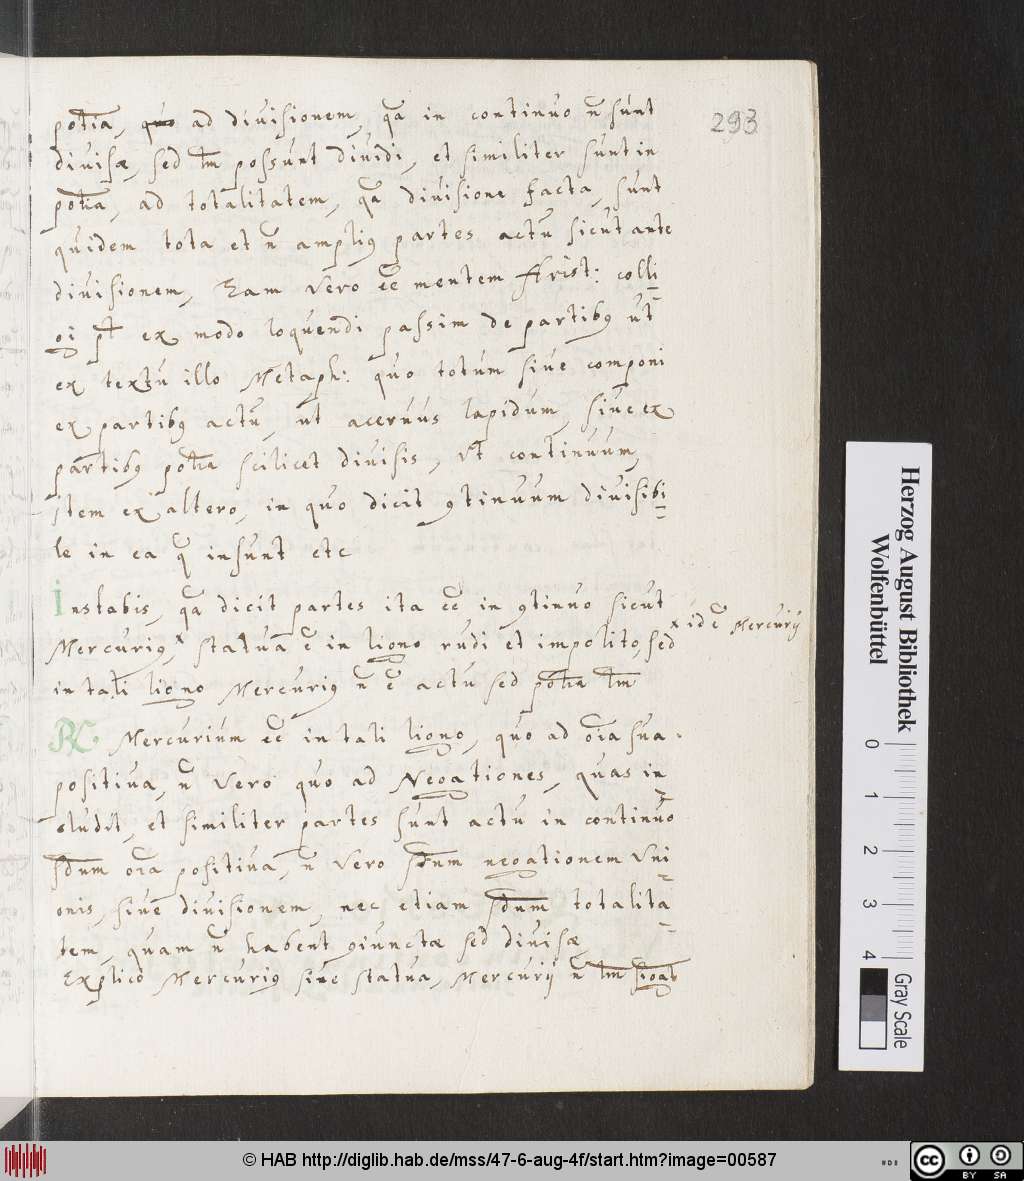 293
pot̄ia, quo ad diuisionem, qa in continuo n̄ sunt
diuisæ, sed tm̄ possunt diuidi, et similiter sunt in
pot̄ia, ad totalitatem, qa diuisione facta, sunt
quidem tota et n̄ ampliꝰ partes actu sicut ante
diuisionem, Eam vero ēē mentem Arist: colli=
gi pt̄ ex modo loquendi passim de partibꝰ ut
ex textu illo Metaph: quo totum siue componi
ex partibꝰ actu, ut aceruus lapidum, siue ex
partibꝰ pot̄ia scilicet diuisis, vt continuum,
item ex altero, in quo dicit ꝯtinuum diuisibi=
le in ea q̄ insunt etc
Instabis, qa dicit partes ita ēē in ꝯtinuo sicut
Mercuriꝰ,ˣ statua ē in ligno rudi et impolito, sed
x id ē Mercurij
in tali ligno Mercuriꝰ n̄ ē actu sed pot̄ia tm̄
R Mercurium ēē in tali ligno, quo ad oīa sua
positiua, n̄ vero quo ad Negationes, quas in=
cludit, et similiter partes sunt actu in continuo
sdum oīa positiua, n̄ vero sdum negationem vni=
onis, siue diuisionem, nec etiam sdum totalita=
tem, quam n̄ habent ꝯiunctæ sed diuisæ
Explico Mercuriꝰ siue statua, Mercurij n̄ tm̄ sigat
Herzog August Bibliothek
Wolfenbüttel
0 1 2 3 4
Gray Scale
© HAB http://diglib.hab.de/mss/47-6-aug-4f/start.htm?image=00587
cc BY SA